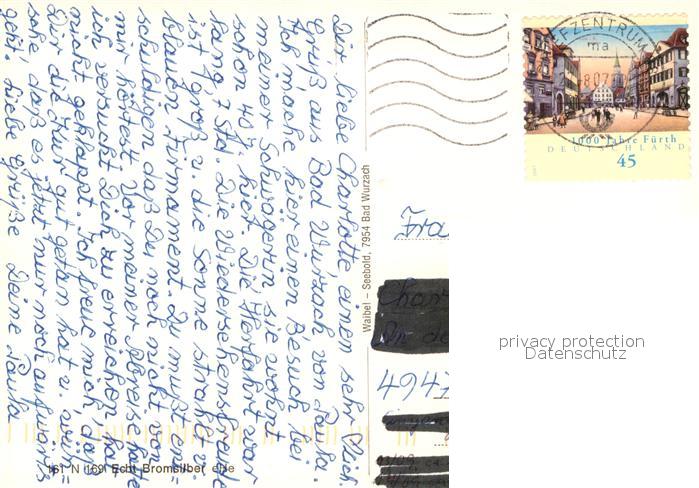 Dir liebe Charlotte einen sehr lieb.
Gruß aus Bad Wurzach von Paula.
Ich mache hier einen Besuch bei
meiner Schwägerin sie wohnt
schon 40 J. hier. Die Herfahrt war
lang 7 Std. Die Wiedersehensfreude
ist groß u. die Sonne strahlt v.
blauen Firmament. Du mußt ent-
schuldigen daß Du noch nicht von
mir hörtest. Vor meiner Abreise hatte
ich versucht Dich zu erreichen hat
nicht geklappt. Ich freue mich, daß
Dir die Kur gut getan hat u. wün-
sche daß es jetzt nur noch aufwärts
geht. Liebe Grüße Deine Paula
Waibel – Seebold, 7954 Bad Wurzach
161 N 169 Echt Bromsilber
FZENTRUM
1000 Jahre Fürth
DEUTSCHLAND
45
Frau
Char
494
privacy protection
Datenschutz